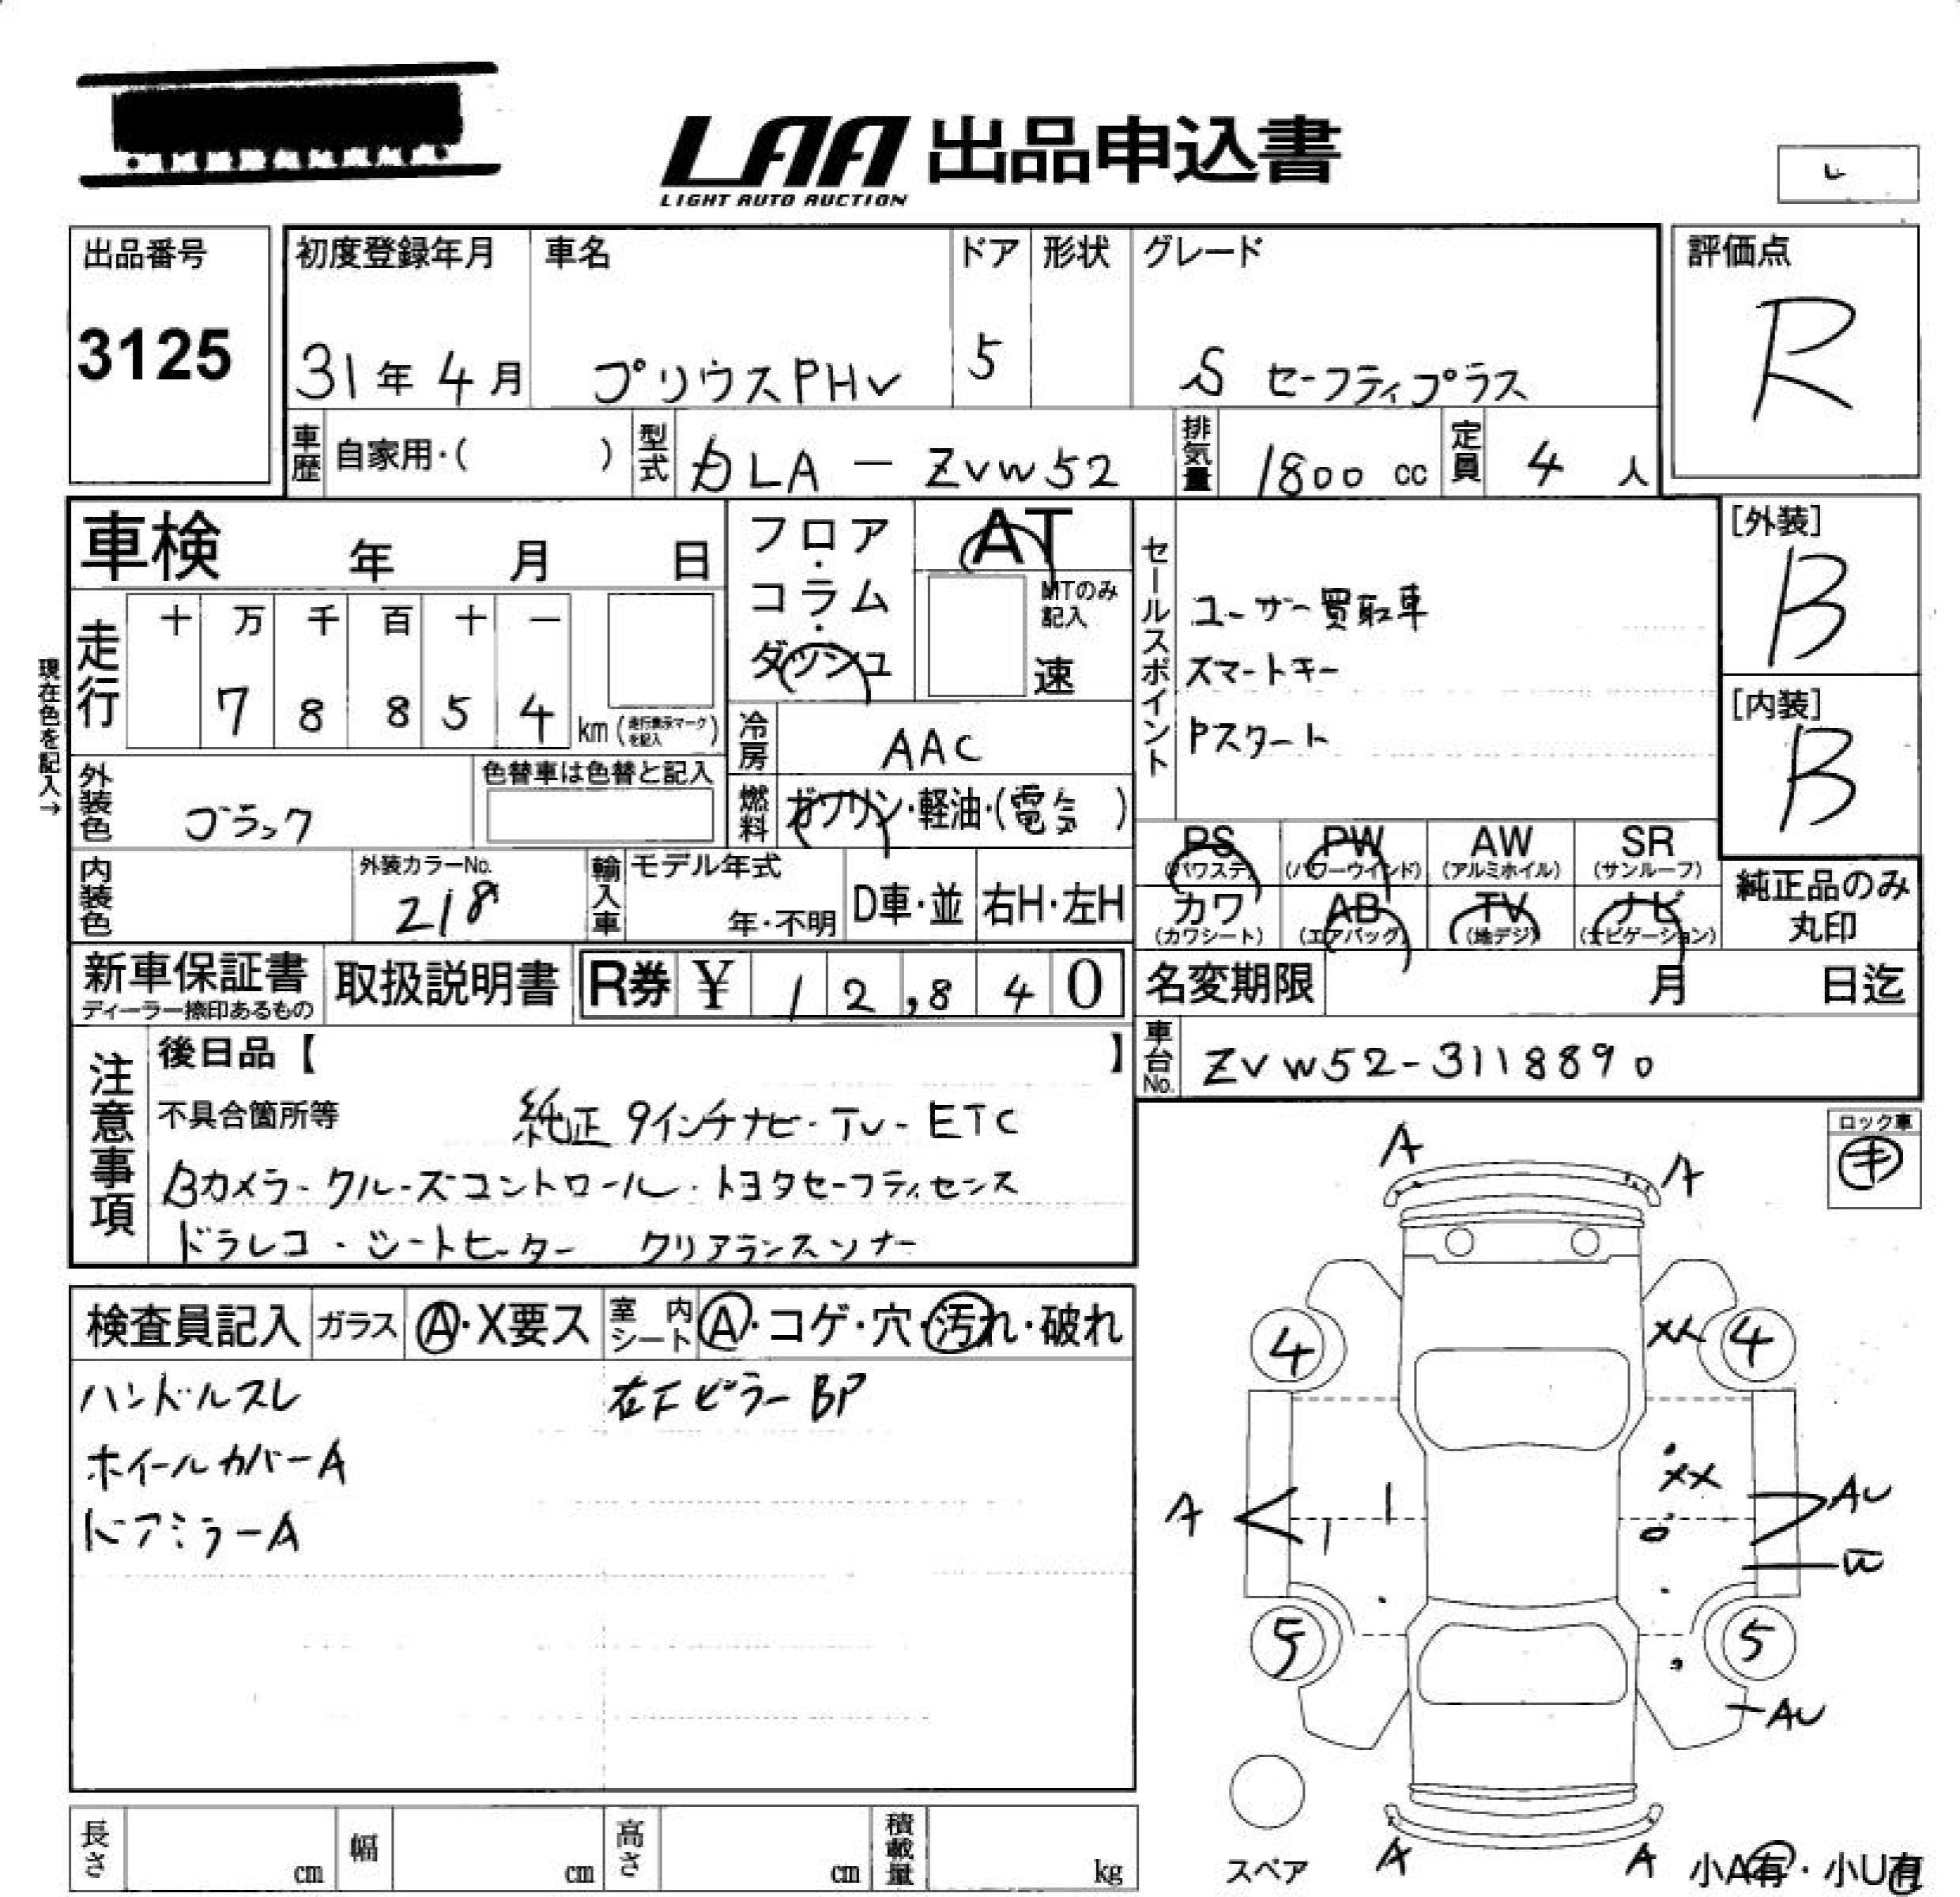 LAA 出品申込書
LIGHT AUTO AUCTION
出品番号
3125
初度登録年月
31年4月
車名
プリウスPHV
ドア
5
形状
グレード
S セーフティプラス
評価点
R
車歴 自家用・( )
型式 DLA-ZVW52
排気量 1800 cc
定員 4 人
車検 年 月 日
フロア・コラム・ダッシュ
AT
MTのみ記入
速
セールスポイント
ユーザー買取車
スマートキー
Pスタート
[外装]
B
[内装]
B
現在色を記入→
走行
十 万 千 百 十 一
7 8 8 5 4 km (走行表示マークを記入)
冷房 AAC
外装色 ブラック
色替車は色替と記入
燃料 ガソリン・軽油・(電気)
PS (パワステ)
PW (パワーウインド)
AW (アルミホイル)
SR (サンルーフ)
カワ (カワシート)
AB (エアバッグ)
TV (地デジ)
ナビ (ナビゲーション)
純正品のみ丸印
内装色
外装カラーNo.
218
輸入車
モデル年式
年・不明
D車・並
右H・左H
新車保証書
ディーラー捺印あるもの
取扱説明書
R券 ¥ 12,840
名変期限 月 日迄
車台No. ZVW52-3118890
注意事項
後日品【 】
不具合箇所等 純正9インチナビ・TV・ETC
Bカメラ・クルーズコントロール・トヨタセーフティセンス
ドラレコ・シートヒーター クリアランスソナー
ロック車
キ
検査員記入
ガラス A・X要ス
室内シート A・コゲ・穴・汚れ・破れ
ハンドルスレ 右Fピラー BP
ホイールカバーA
ドアミラーA
A
A
XX
4
4
XX
A
AU
W
5
5
AU
スペア
A
A
小A有・小U有
長さ cm
幅 cm
高さ cm
積載量 kg